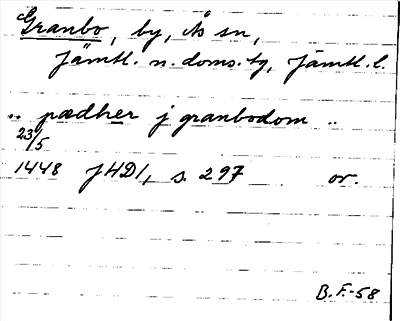 Granbo, by, Ås sn,
Jämtl. n. doms. tg, Jämtl. l.
.. pædher j granbodom ..
23/5
1448 JHD1, s. 297 or.
B.F.-58